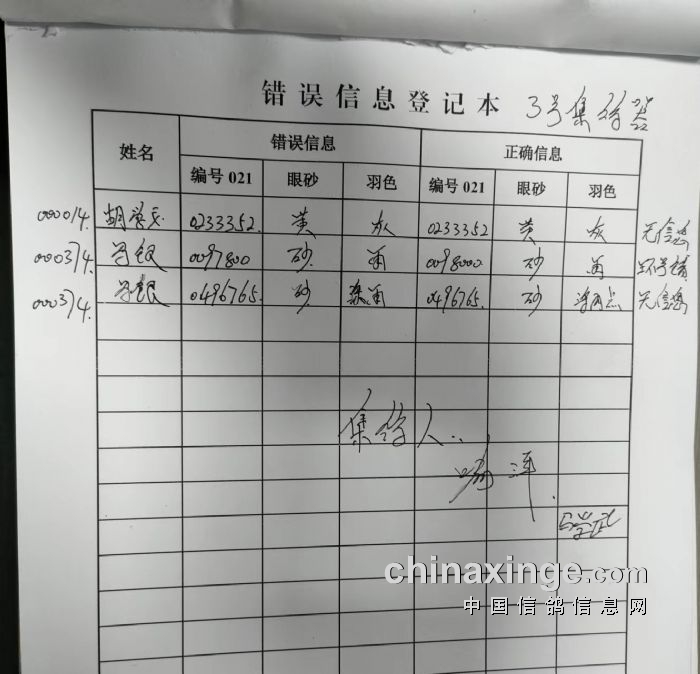 错误信息登记本 3号集鸽器
姓名 错误信息 正确信息
编号021 眼砂 羽色 编号021 眼砂 羽色
000014. 胡学 0233352. 黄 灰 0233352 黄 灰 无信鸽
000374. 银 0097800 砂 雨 0098000 砂 雨 环号错
000374. 银 0496765. 砂 杂雨 0496765. 砂 无信鸽
集鸽人:
chinaxinge.com
中国信鸽信息网